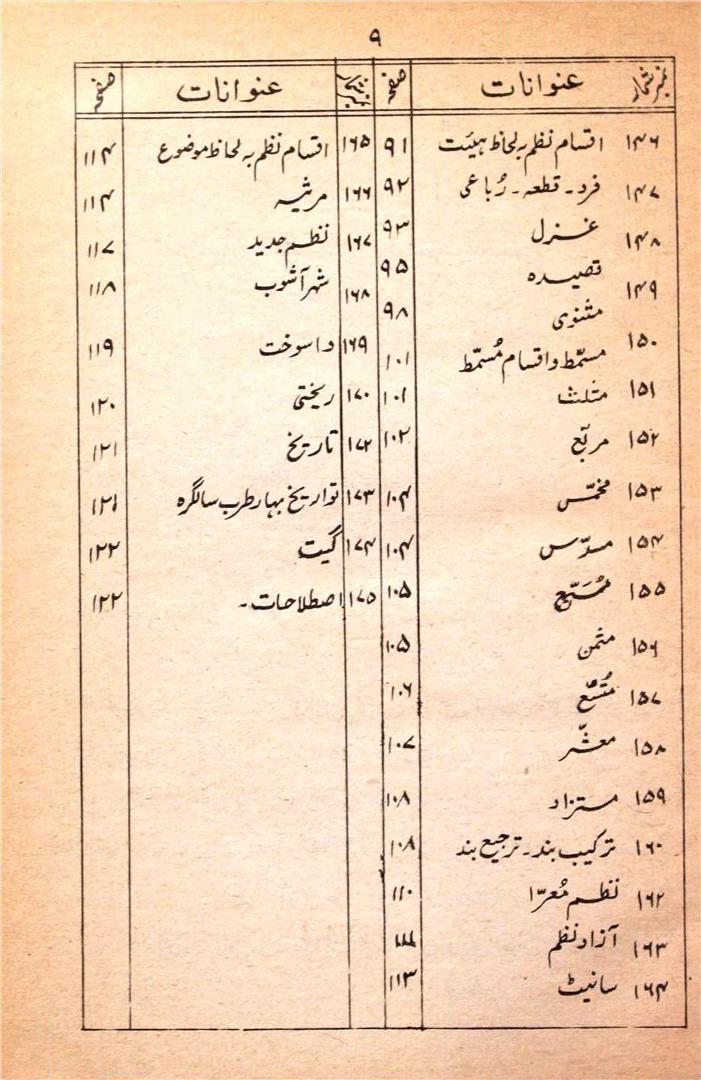 ۹
نمبر شمار عنوانات صفحہ
۱۴۶ اقسام نظم بہ لحاظ ہیئت ۹۱
۱۴۷ فرد۔ قطعہ۔ رُباعی ۹۲
۱۴۸ غزل ۹۳
۱۴۹ قصیدہ ۹۵
مثنوی ۹۸
۱۵۰ مسمّط و اقسام مُسمّط ۱۰۱
۱۵۱ مثلث ۱۰۱
۱۵۲ مربّع ۱۰۲
۱۵۳ مخمّس ۱۰۴
۱۵۴ مسدّس ۱۰۴
۱۵۵ مُسَبّع ۱۰۵
۱۵۶ مثمن ۱۰۵
۱۵۷ مُتسّع ۱۰۶
۱۵۸ معشّر ۱۰۷
۱۵۹ مستزاد ۱۰۸
۱۶۰ ترکیب بند۔ ترجیع بند ۱۰۸
۱۶۲ نظم مُعرّا ۱۱۰
۱۶۳ آزاد نظم ۱۱۱
۱۶۴ سانیٹ ۱۱۳
نمبر شمار عنوانات صفحہ
۱۶۵ اقسام نظم بہ لحاظ موضوع ۱۱۴
۱۶۶ مرثیہ ۱۱۴
۱۶۷ نظم جدید ۱۱۷
۱۶۸ شہر آشوب ۱۱۸
۱۶۹ واسوخت ۱۱۹
۱۷۰ ریختی ۱۲۰
۱۷۲ تاریخ ۱۲۱
۱۷۳ تواریخ بہار طرب سالگرہ ۱۲۱
۱۷۴ گیت ۱۲۲
۱۷۵ اصطلاحات۔ ۱۲۲